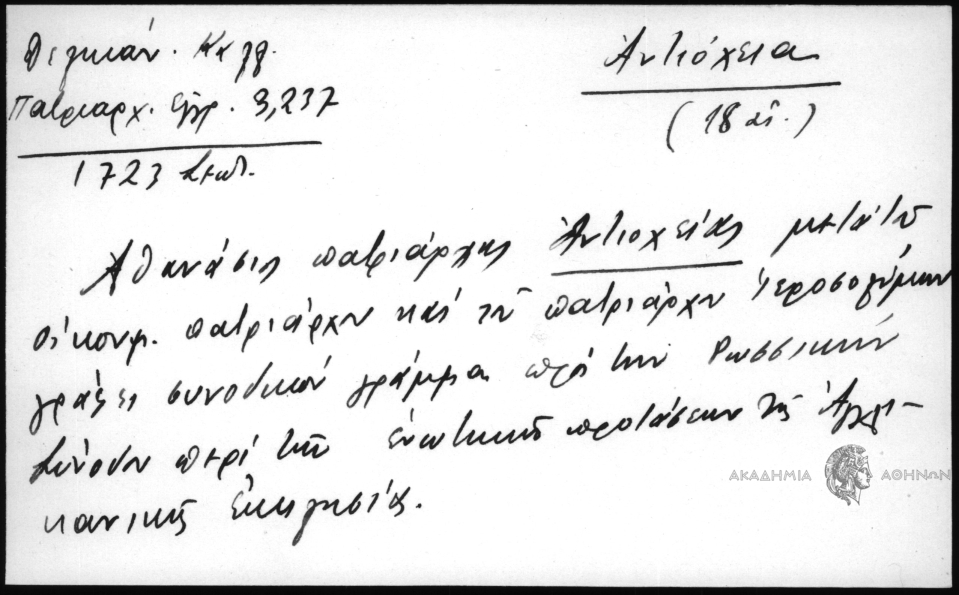 Δελικάν. Καλλ.
Πατριαρχ. Εγγρ. 3,237
1723 Σεπτ.
Ἀντιόχεια
(18 αἰ.)
Ἀθανάσιος πατριάρχης Ἀντιοχείας μετὰ τοῦ
οἰκουμ. πατριάρχου καὶ τοῦ πατριάρχου Ἱεροσολύμων
γράφει συνοδικὸν γράμμα πρὸς τὴν Ρωσσικὴν
Σύνοδον περὶ τῆς ἑνωτικῆς προτάσεως τῆς Ἀγγλι-
κανικῆς Ἐκκλησίας.
ΑΚΑΔΗΜΙΑ ΑΘΗΝΩΝ